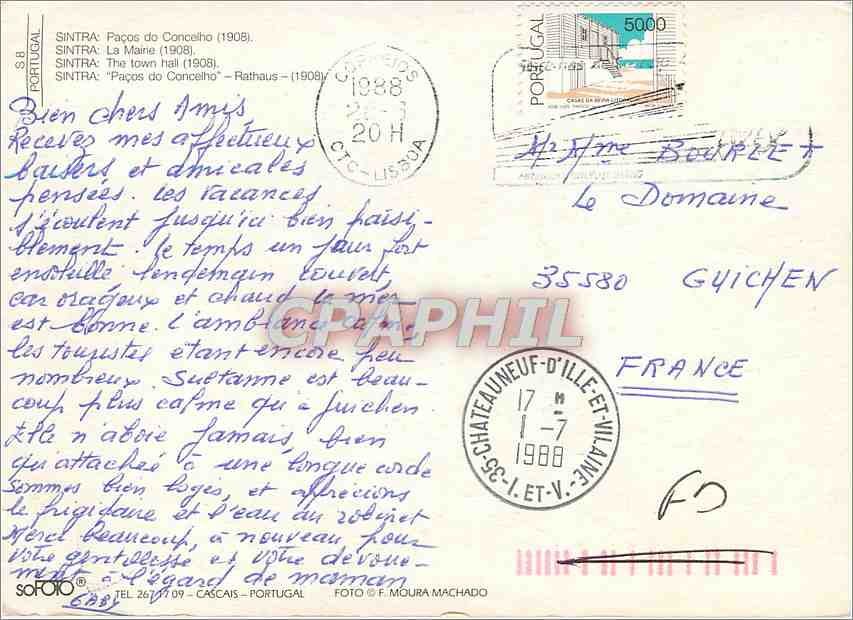 S 8
PORTUGAL
SINTRA: Paços do Concelho (1908).
SINTRA: La Mairie (1908).
SINTRA: The town hall (1908).
SINTRA: "Paços do Concelho" – Rathaus – (1908)
CORREIOS
1988
20 H
CTC - LISBOA
PORTUGAL
50.00
CASAS DA BEIRA LITORAL
Mr Mme BOURLET
Le Domaine
35580 GUICHEN
FRANCE
Bien chers Amis,
Recevez mes affectueux
baisers et amicales
pensées. Les vacances
s'écoulent jusqu'ici bien paisi-
blement. Le temps un jour fort
ensoleillé lendemain couvert,
car orageux et chaud la mer
est bonne. L'ambiance calme,
les touristes étant encore peu
nombreux. Sultanne est beau-
coup plus calme qu'à Guichen.
Elle n'aboie jamais, bien
qu'attachée à une longue corde
Sommes bien logés, et apprécions
le frigidaire et l'eau au robinet
Merci beaucoup, à nouveau, pour
votre gentillesse et votre dévoue-
ment à l'égard de maman
GABY
CPAPHIL
35-CHATEAUNEUF-D'ILLE-ET-VILAINE-
17 H
1-7
1988
I.-ET-V.-
FD
SOFOTO® TEL. 267 17 09 – CASCAIS – PORTUGAL FOTO © F. MOURA MACHADO